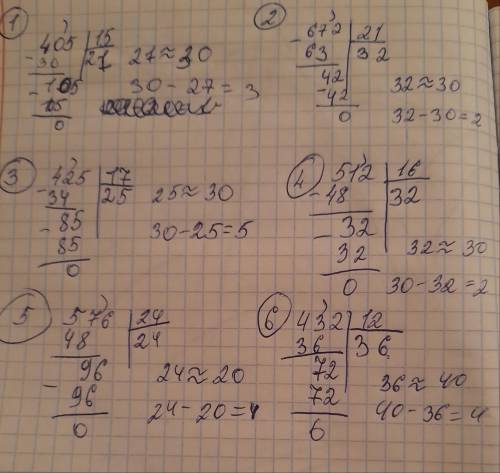 1
405 | 15
- 30 | 27
105 27 ≈ 30
- 105 30 - 27 = 3
0
2
- 672 | 21
63 | 32
42
- 42 32 ≈ 30
0 32 - 30 = 2
3
- 425 | 17
34 | 25 25 ≈ 30
- 85 30 - 25 = 5
85
0
4
512 | 16
- 48 | 32
- 32
32 32 ≈ 30
0 30 - 32 = 2
5
576 | 24
48 | 24
96 24 ≈ 20
- 96 24 - 20 = 4
0
6
432 | 12
36 | 36
72 36 ≈ 40
72 40 - 36 = 4
0